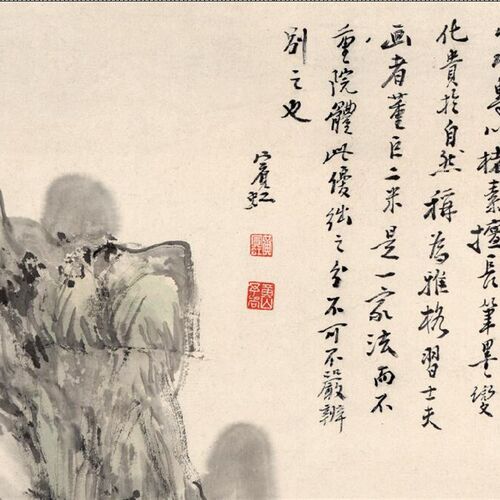 以楮素擅長筆墨變
化貴於自然稱為雅格習士夫
画者董巨二米是一家法而不
重院體此優絀之分不可不嚴辨
別之也
賓虹